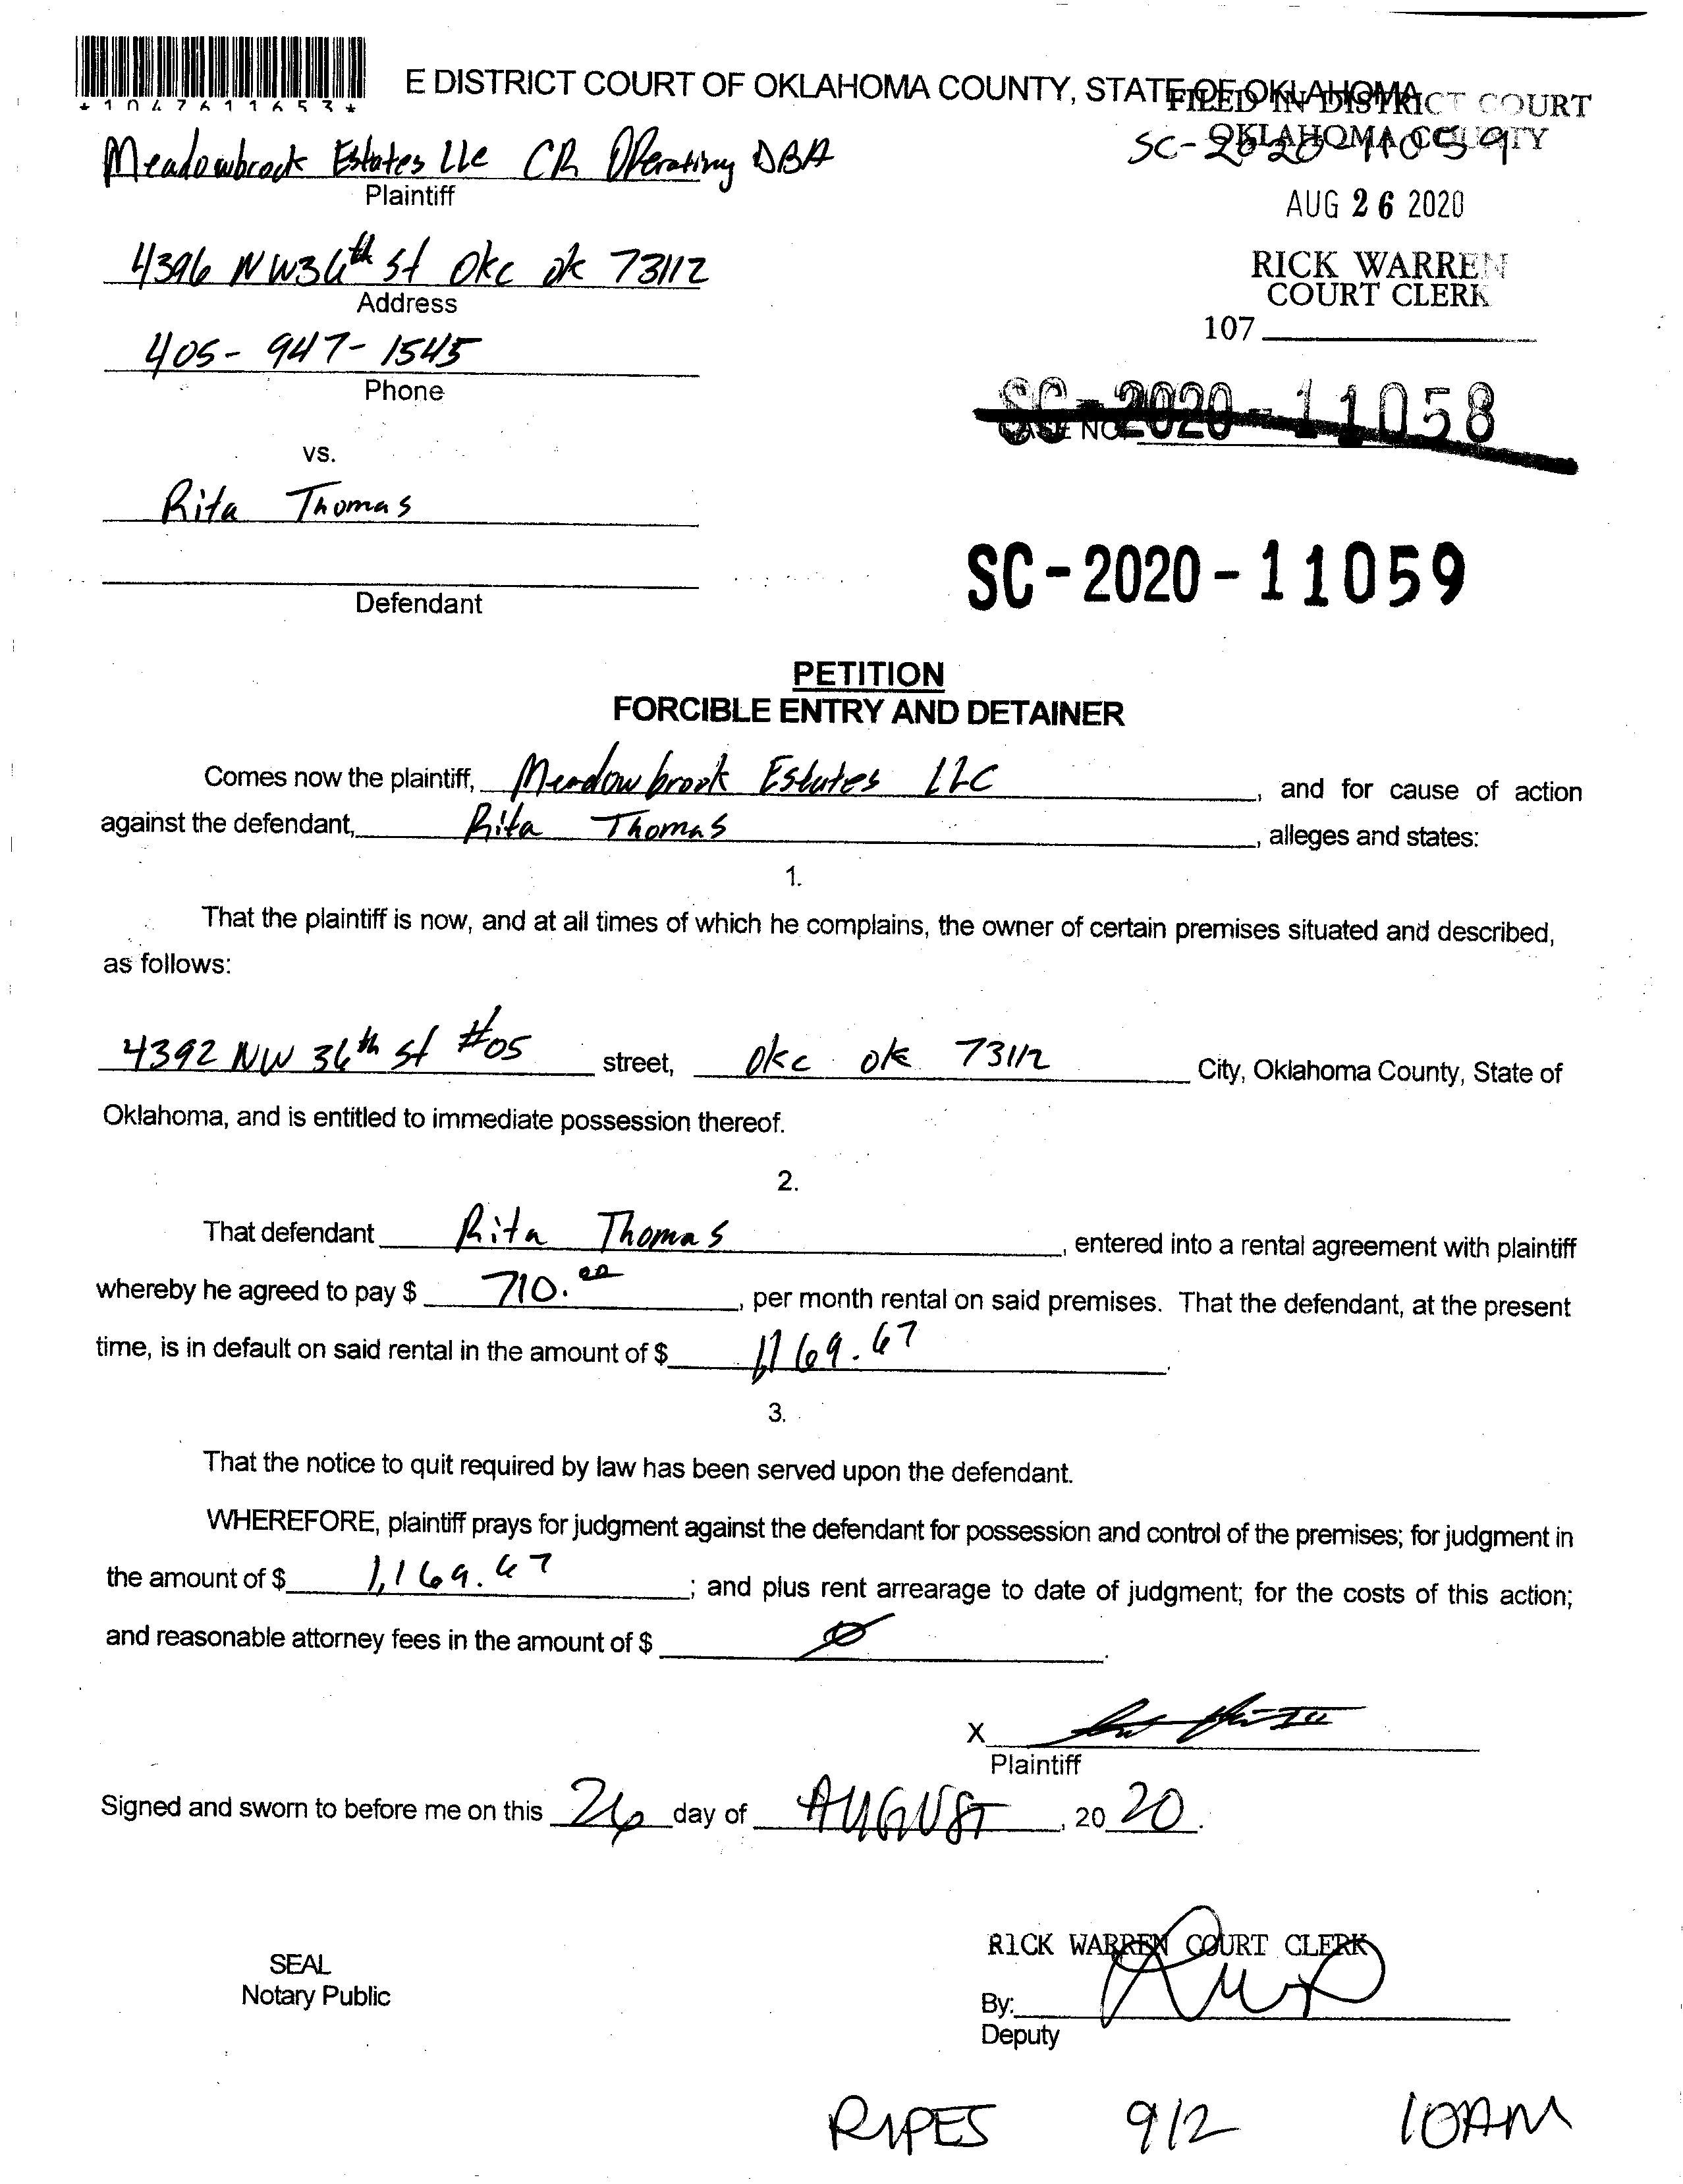 *1047611653*
E DISTRICT COURT OF OKLAHOMA COUNTY, STATE OF OKLAHOMA
FILED IN DISTRICT COURT
OKLAHOMA COUNTY
SC-2020-11059
Meadowbrook Estates LLC CR Operating DBA
Plaintiff
AUG 26 2020
4396 NW 36th St Okc ok 73112
Address
RICK WARREN
COURT CLERK
107
405-947-1545
Phone
SC-2020-11058
CASE NO.
vs.
Rita Thomas
SC-2020-11059
Defendant
PETITION
FORCIBLE ENTRY AND DETAINER
Comes now the plaintiff, Meadowbrook Estates LLC, and for cause of action
against the defendant, Rita Thomas, alleges and states:
1.
That the plaintiff is now, and at all times of which he complains, the owner of certain premises situated and described,
as follows:
4392 NW 36th St #05 street, Okc ok 73112 City, Oklahoma County, State of
Oklahoma, and is entitled to immediate possession thereof.
2.
That defendant Rita Thomas, entered into a rental agreement with plaintiff
whereby he agreed to pay $ 710.00, per month rental on said premises. That the defendant, at the present
time, is in default on said rental in the amount of $ 1,169.67.
3.
That the notice to quit required by law has been served upon the defendant.
WHEREFORE, plaintiff prays for judgment against the defendant for possession and control of the premises; for judgment in
the amount of $ 1,169.67; and plus rent arrearage to date of judgment; for the costs of this action;
and reasonable attorney fees in the amount of $ Ø.
X
Plaintiff
Signed and sworn to before me on this 26 day of AUGUST, 2020.
RICK WARREN COURT CLERK
SEAL
Notary Public
By:
Deputy
RIPES 9/2 10AM